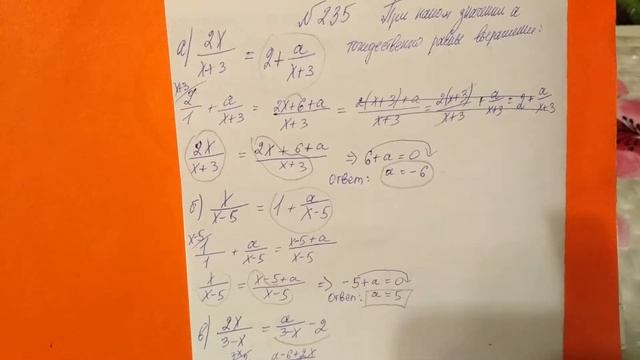 №235 При каком значении а
тождественно равны выражения:
а) 2x/(x+3) = 2 + a/(x+3)
x+3
2/1 + a/(x+3) = (2x+6+a)/(x+3) = (2(x+3)+a)/(x+3) = 2(x+3)/(x+3) + a/(x+3) = 2 + a/(x+3)
2x/(x+3) = (2x+6+a)/(x+3) ⇒ 6+a=0
Ответ: a=-6
б) x/(x-5) = 1 + a/(x-5)
x-5
1/1 + a/(x-5) = (x-5+a)/(x-5)
x/(x-5) = (x-5+a)/(x-5) ⇒ -5+a=0
Ответ: a=5
в) 2x/(3-x) = a/(3-x) - 2
a-6+2x